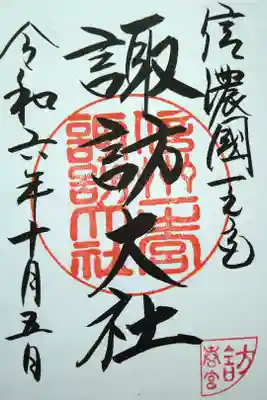 信濃國一之宮
諏訪大社
令和六年十月五日
信州一宮
諏訪大社
諏訪
春宮